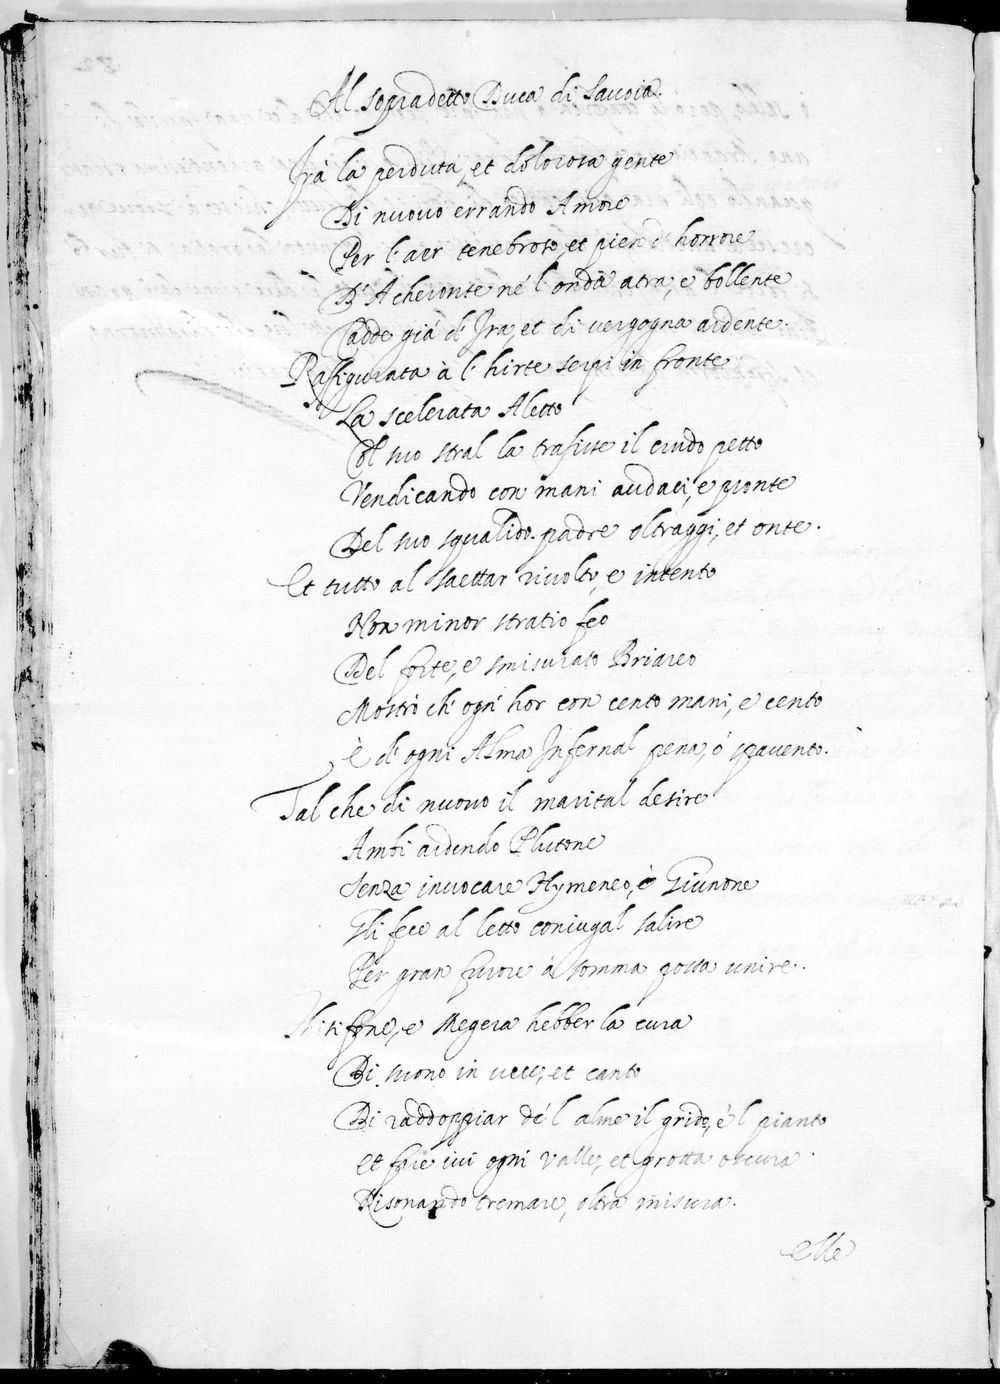 Al sopradetto Duca di Savoia.
Frà la perduta, et dolorosa gente
Di nuovo errando Amore
Per l'aer tenebroso, et pien d' horrore
D'Acheronte né l'onda atra, e bollente
Cadde già d' Ira, et di vergogna ardente.
Raffigurata à l' hirte serpi in fronte
La scelerata Aletto
Col suo stral la trafisse il crudo petto
Vendicando con mani audaci, e pronte
Del suo squalido padre oltraggi, et onte.
Et tutto al saettar rivolto, e intento
Non minor stratio feo
Del forte, e smisurato Briareo
Mostro ch' ogn' hor con cento mani, e cento
è d' ogni Alma Infernal pena, ò spavento.
Tal che di nuovo il marital desire
Ambi ardendo Plutone
Senza invocare Hymeneo, ò Giunone
Gli fece al letto coniugal salire
Per gran furore à somma possa unire.
Thisifone, e Megera hebber la cura
Di suono in vece, et canto
Di raddoppiar dé l' alme il grido, e 'l pianto
Et fare ivi ogni valle, et grotta oscura
Risonando tremare, oltra misura.
elle